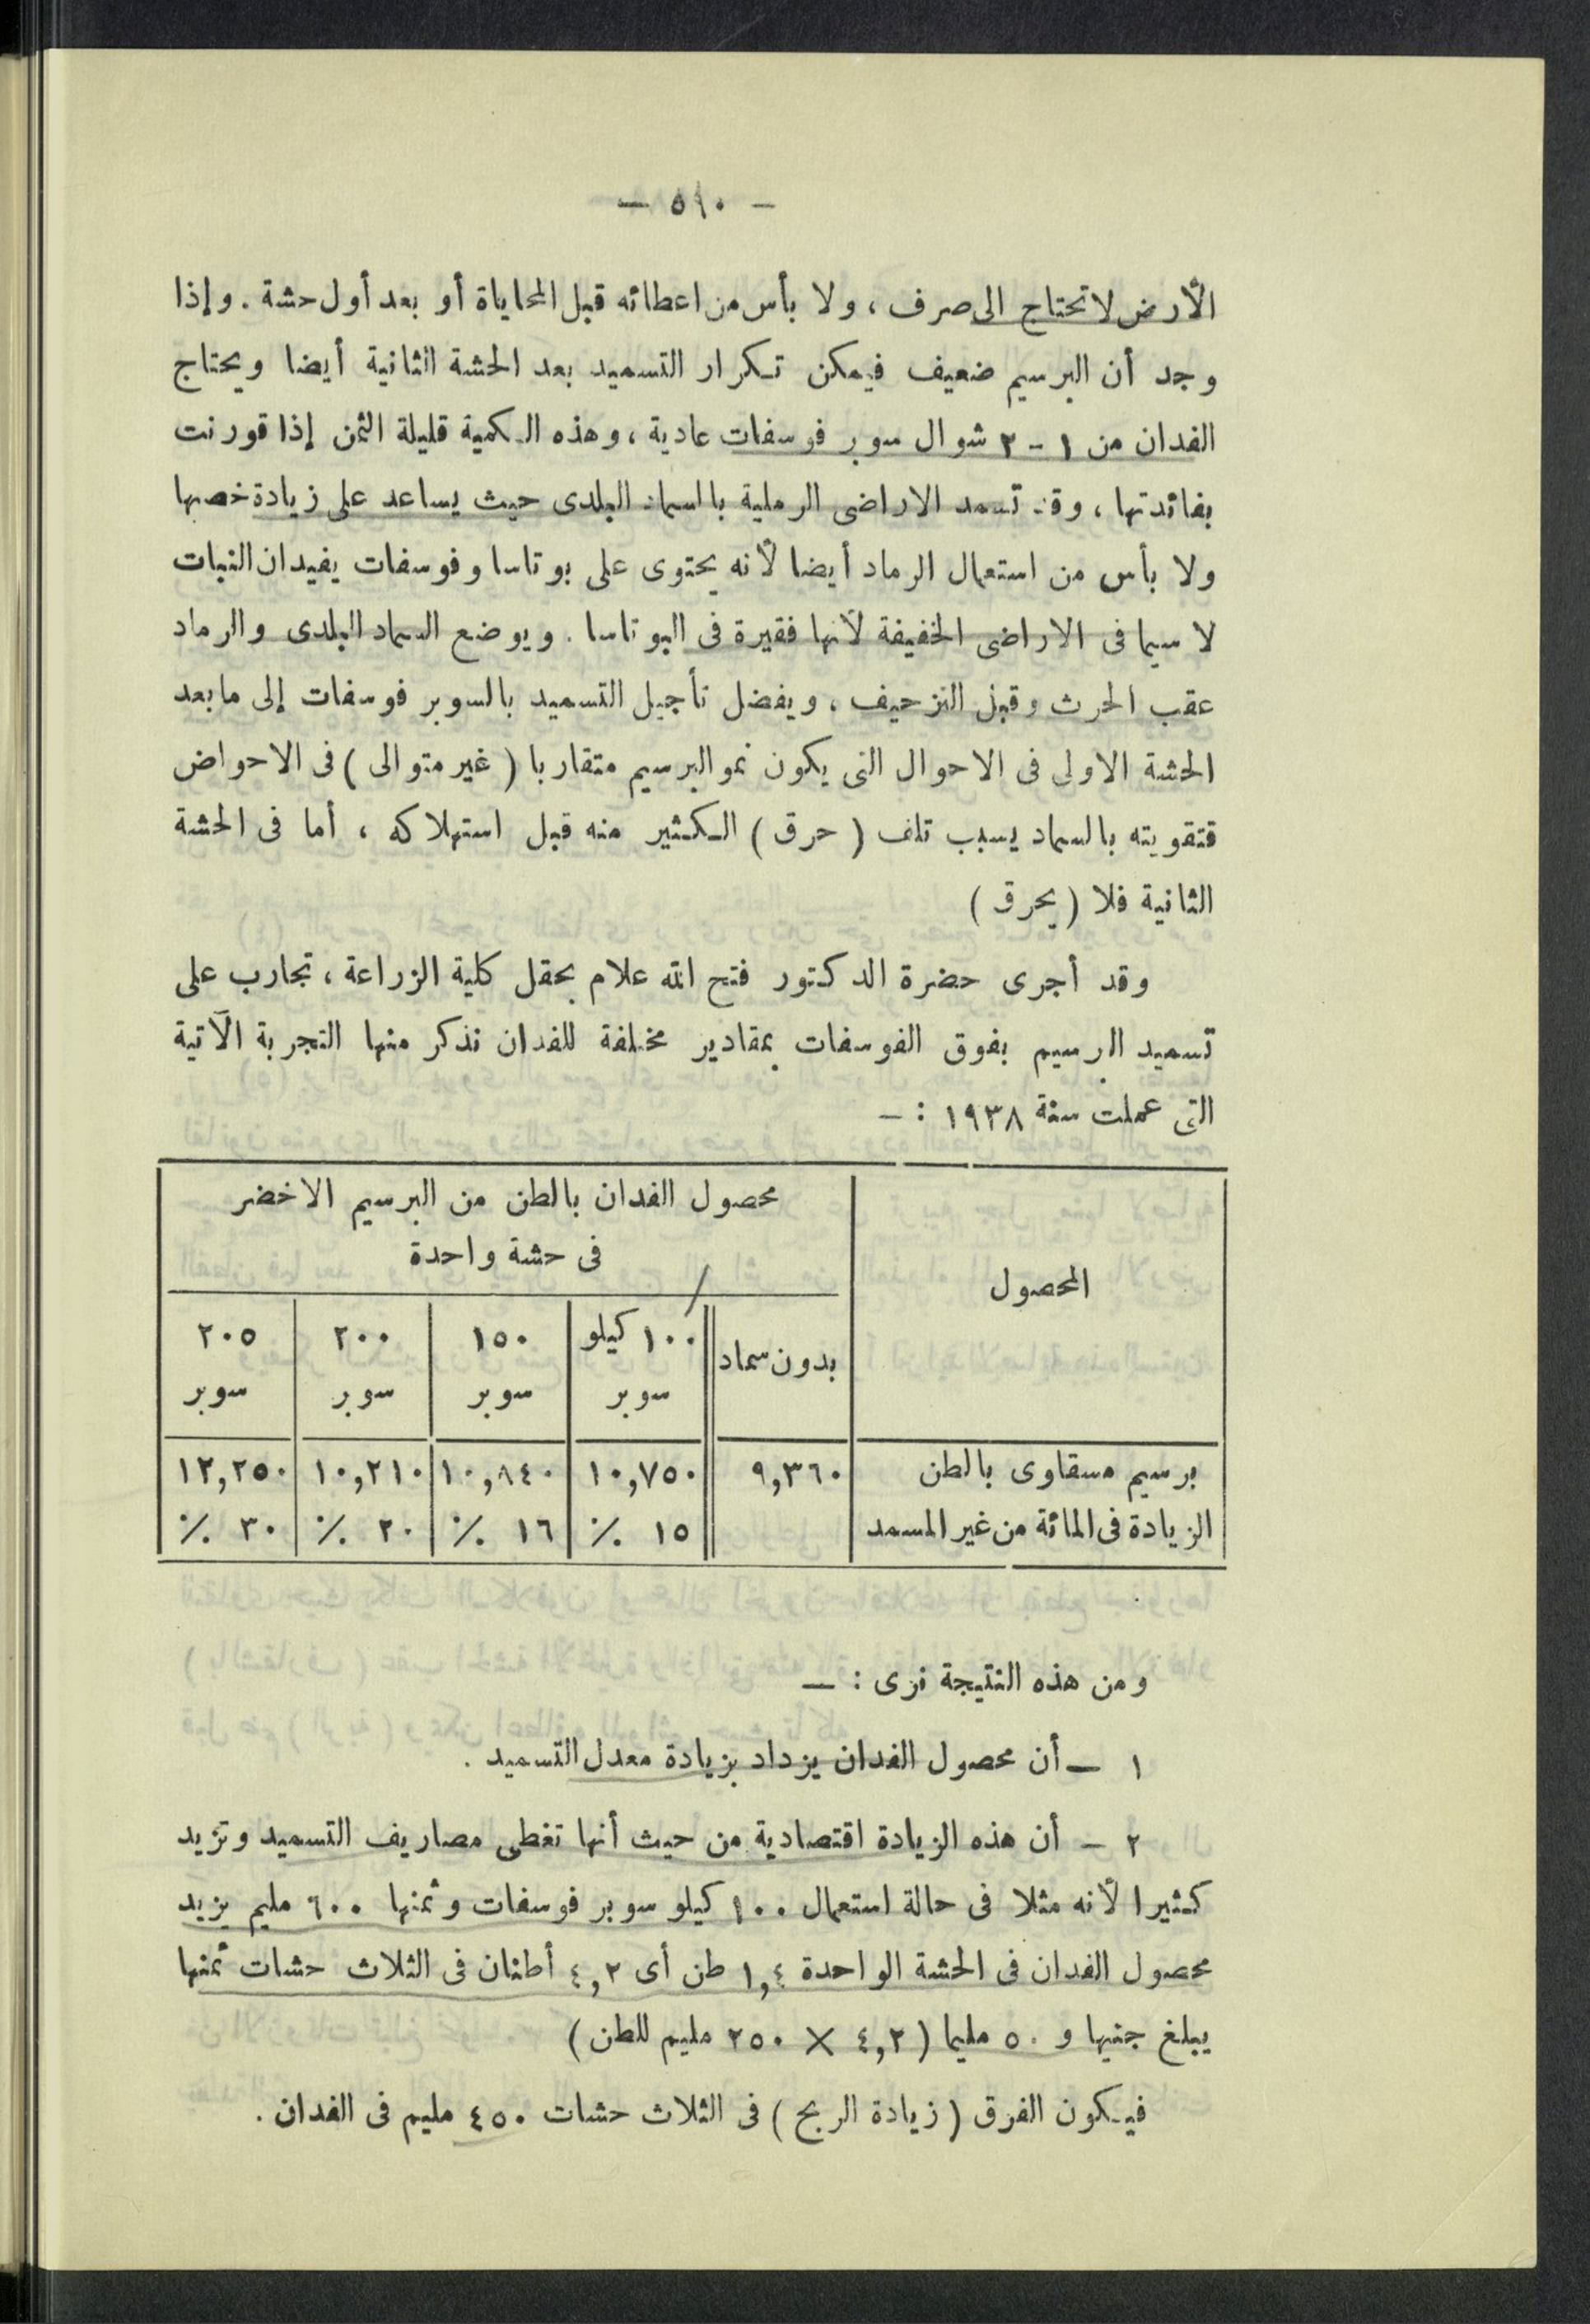 — ٥١٠ —
الأرض لا تحتاج الى صرف ، ولا بأس من اعطائه قبل المحاياة أو بعد أول حشة . وإذا
وجد أن البرسيم ضعيف فيمكن تكرار التسميد بعد الحشة الثانية أيضا ويحتاج
الفدان من ١ - ٢ شوال سوبر فوسفات عادية ، وهذه الكمية قليلة الثمن إذا قورنت
بفائدتها ، وقد تسمد الاراضى الرملية بالسماد البلدى حيث يساعد على زيادة خصبها
ولا بأس من استعمال الرماد أيضا لأنه يحتوى على بوتاسا وفوسفات يفيدان النبات
لا سيما فى الاراضى الخفيفة لأنها فقيرة فى البوتاسا . ويوضع السماد البلدى والرماد
عقب الحرث وقبل التزحيف ، ويفضل تأجيل التسميد بالسوبر فوسفات إلى ما بعد
الحشة الاولى فى الاحوال التى يكون نمو البرسيم متقاربا ( غير متوالى ) فى الاحواض
فتقويته بالسماد يسبب تلف ( حرق ) الكثير منه قبل استهلاكه ، أما فى الحشة
الثانية فلا ( يحرق )
وقد أجرى حضرة الدكتور فتح الله علام بحقل كلية الزراعة ، تجارب على
تسميد البرسيم بفوق الفوسفات بمقادير مختلفة للفدان نذكر منها التجربة الآتية
التى عملت سنة ١٩٣٨ : —
محصول الفدان بالطن من البرسيم الاخضر
فى حشة واحدة
المحصول
بدون سماد
١٠٠ كيلو ١٥٠ ٢٠٠ ٢٠٥
سوبر سوبر سوبر سوبر
برسيم مسقاوى بالطن ٩,٣٦٠ ١٠,٧٥٠ ١٠,٨٤٠ ١٠,٢١٠ ١٢,٢٥٠
الزيادة فى المائة من غير المسمد ١٥ ٪ ١٦ ٪ ٢٠ ٪ ٣٠ ٪
ومن هذه النتيجة نرى : —
١ — أن محصول الفدان يزداد بزيادة معدل التسميد .
٢ — أن هذه الزيادة اقتصادية من حيث أنها تغطى مصاريف التسميد وتزيد
كثيرا لأنه مثلا فى حالة استعمال ١٠٠ كيلو سوبر فوسفات وثمنها ٦٠٠ مليم يزيد
محصول الفدان فى الحشة الواحدة ١,٤ طن أى ٤,٢ أطنان فى الثلاث حشات ثمنها
يبلغ جنيها و ٥٠ مليما ( ٤,٢ × ٢٥٠ مليم للطن )
فيكون الفرق ( زيادة الربح ) فى الثلاث حشات ٤٥٠ مليم فى الفدان .